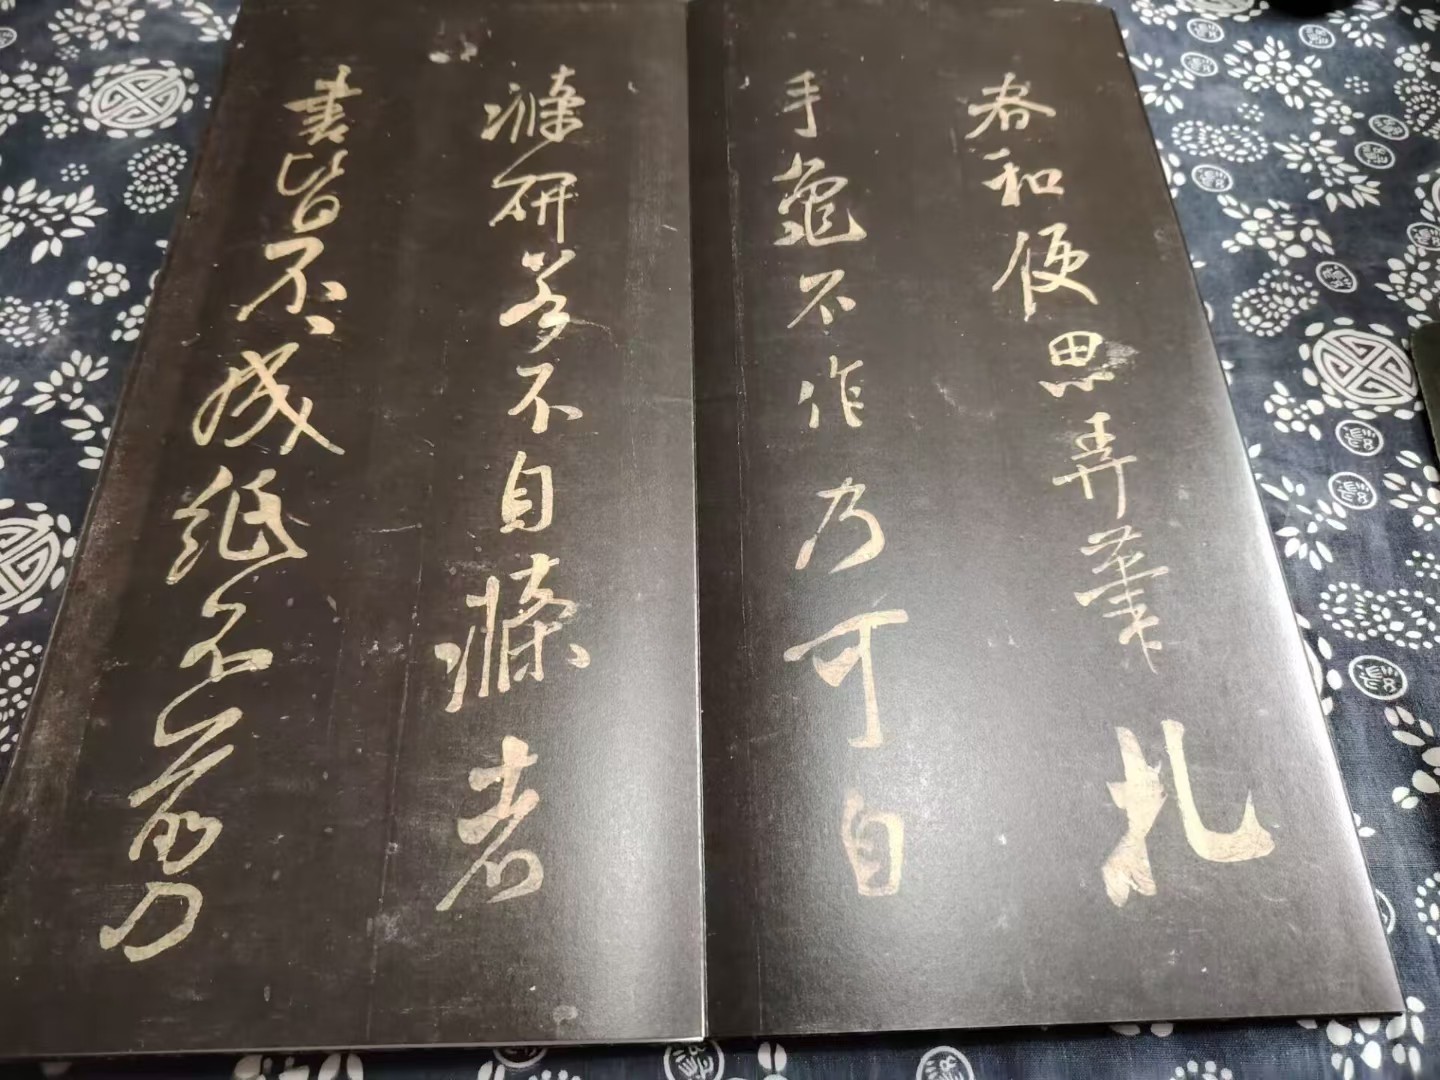 春和便思弄筆札
手龜不作乃可自
滌研若不自滌者
書皆不成紙不剪